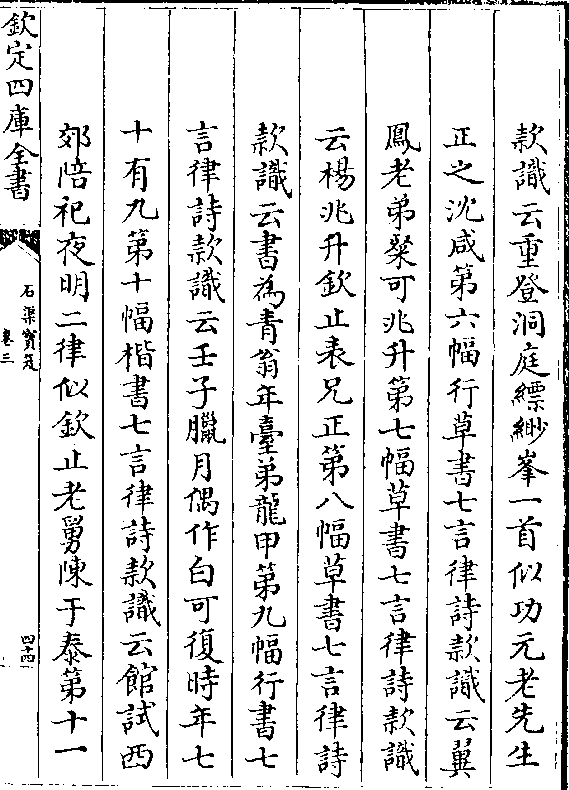 款識云重登洞庭縹緲峯一首似功元老先生
正之沈咸第六幅行草書七言律詩款識云翼
鳳老弟粲可兆升第七幅草書七言律詩款識
云楊兆升欽止表兄正第八幅草書七言律詩
款識云書為青翁年臺弟龍甲第九幅行書七
言律詩款識云壬子臘月偶作白可復時年七
十有九第十幅楷書七言律詩款識云館試西
郊陪祀夜明二律似欽止老舅陳于泰第十一
欽定四庫全書
石渠寶笈
卷三
四十四